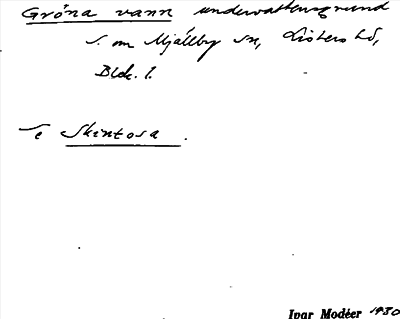 Gröna vann undervattensgrund
S. om Mjällby sn, Listers hd,
Blek. l.
Se Skintosa.
Ivar Modéer 1930